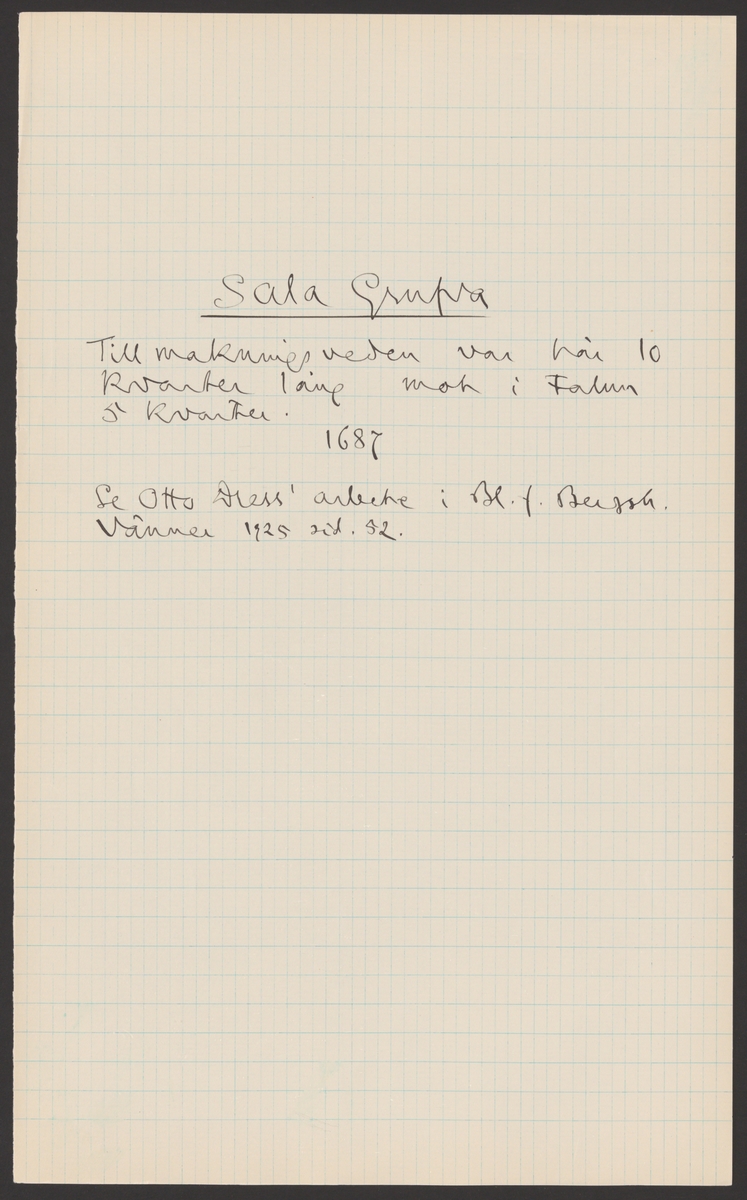 Sala Grufva
Tillmakningsveden var här 10
kvarter lång mot i Falun
5 kvarter.
1687
Se Otto Dress' arbete i Bl. f. Bergsh.
Vänner 1925 sid. 52.